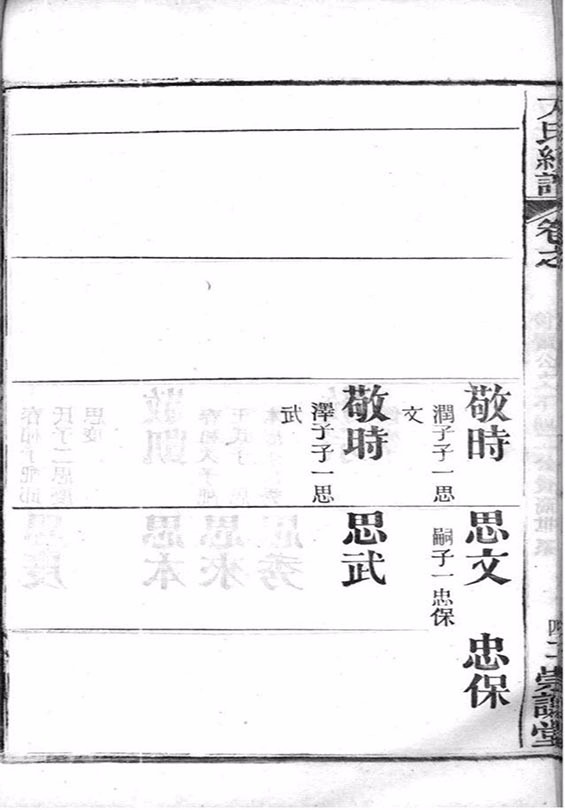 氏統譜
卷之
崇讓堂
敬時
潤子子一思
文
思文
嗣子一忠保
忠保
敬時
澤子子一思
武
思武